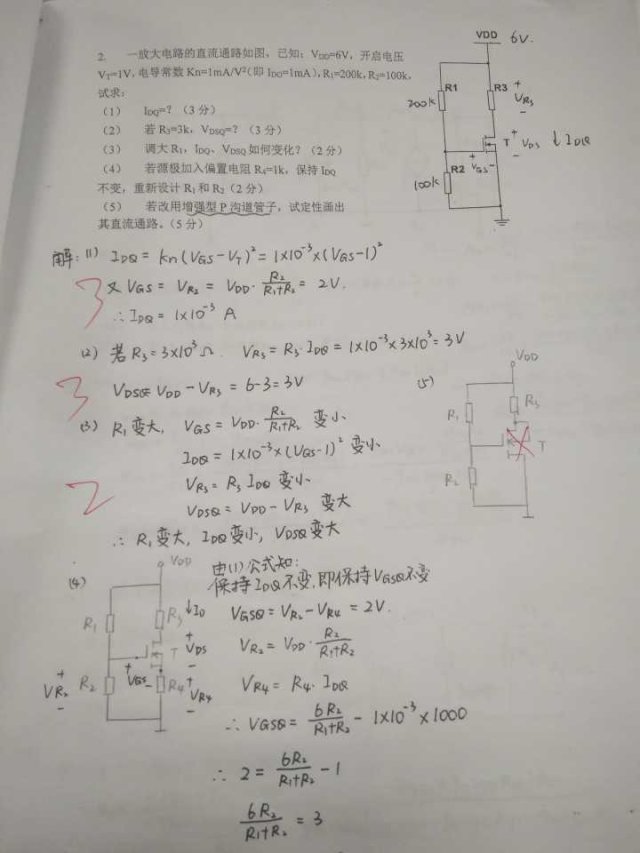 2. 一放大电路的直流通路如图，已知：VDD=6V，开启电压
VT=1V，电导常数 Kn=1mA/V²（即 IDO=1mA），R₁=200k，R₂=100k，
试求：
（1） IDQ=？（3 分）
（2） 若 R₃=3k，VDSQ=？（3 分）
（3） 调大 R₁，IDQ、VDSQ 如何变化？（2 分）
（4） 若源极加入偏置电阻 R₄=1k，保持 IDQ
不变，重新设计 R₁ 和 R₂（2 分）
（5） 若改用增强型 P 沟道管子，试定性画出
其直流通路。（5 分）
VDD 6V.
R1 200k
R3 + VR₃ -
T + VDS - ↓IDQ
R2 100k
+ VGS -
解：(1) IDQ = kn(VGS-VT)² = 1×10⁻³×(VGS-1)²
3
又 VGS = VR₂ = VDD·R₂/(R₁+R₂) = 2V.
∴ IDQ = 1×10⁻³ A
(2) 若 R₃=3×10³Ω. VR₃ = R₃·IDQ = 1×10⁻³×3×10³ = 3V
3
VDSQ = VDD - VR₃ = 6-3 = 3V
(3) R₁ 变大, VGS = VDD·R₂/(R₁+R₂) 变小
IDQ = 1×10⁻³×(VGS-1)² 变小
2
VR₃ = R₃ IDQ 变小
VDSQ = VDD - VR₃ 变大
∴ R₁变大, IDQ变小, VDSQ变大
(5)
VDD
R₁
R₃
T
R₂
(4)
VDD
R₁
R₃ ↓ID
T + VDS -
+ VGS -
+ VR₂ - R₂
R₄ + VR₄ -
由(1)公式知:
保持IDQ不变,即保持VGSQ不变
VGSQ = VR₂ - VR₄ = 2V.
VR₂ = VDD·R₂/(R₁+R₂)
VR₄ = R₄·IDQ
∴ VGSQ = 6R₂/(R₁+R₂) - 1×10⁻³×1000
∴ 2 = 6R₂/(R₁+R₂) - 1
6R₂/(R₁+R₂) = 3